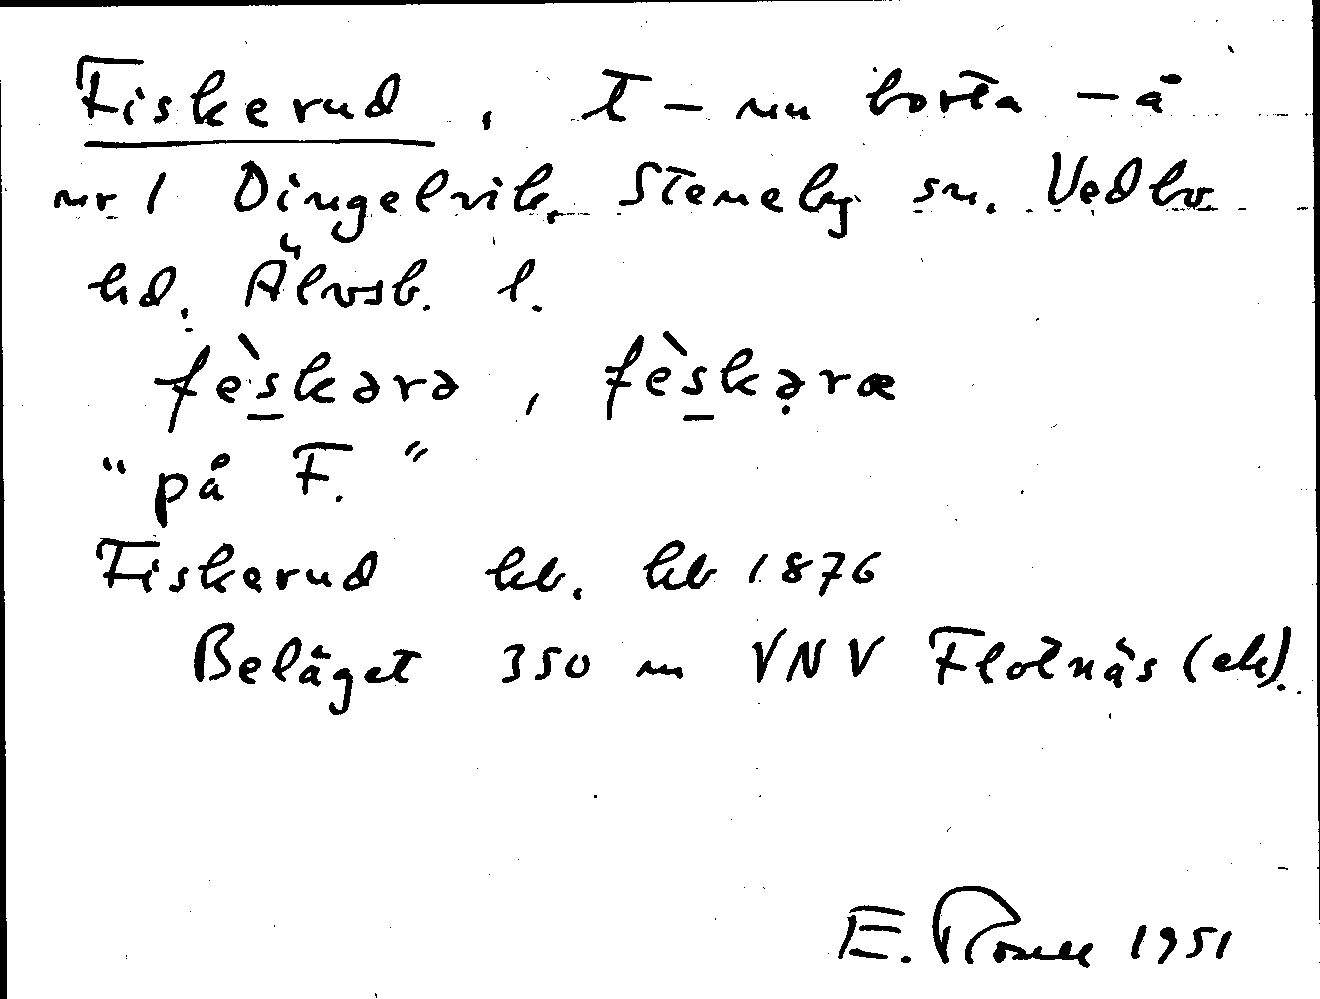 Fiskerud, t – nu borta – å
nr 1 Dingelvik, Steneby sn. Vedbo
hd. Älvsb. l.
fèskərə, fèskə̣ræ
"på F."
Fiskerud hb. kb 1876
Beläget 350 m VNV Flotnäs (ek).
E. Rosell 1951